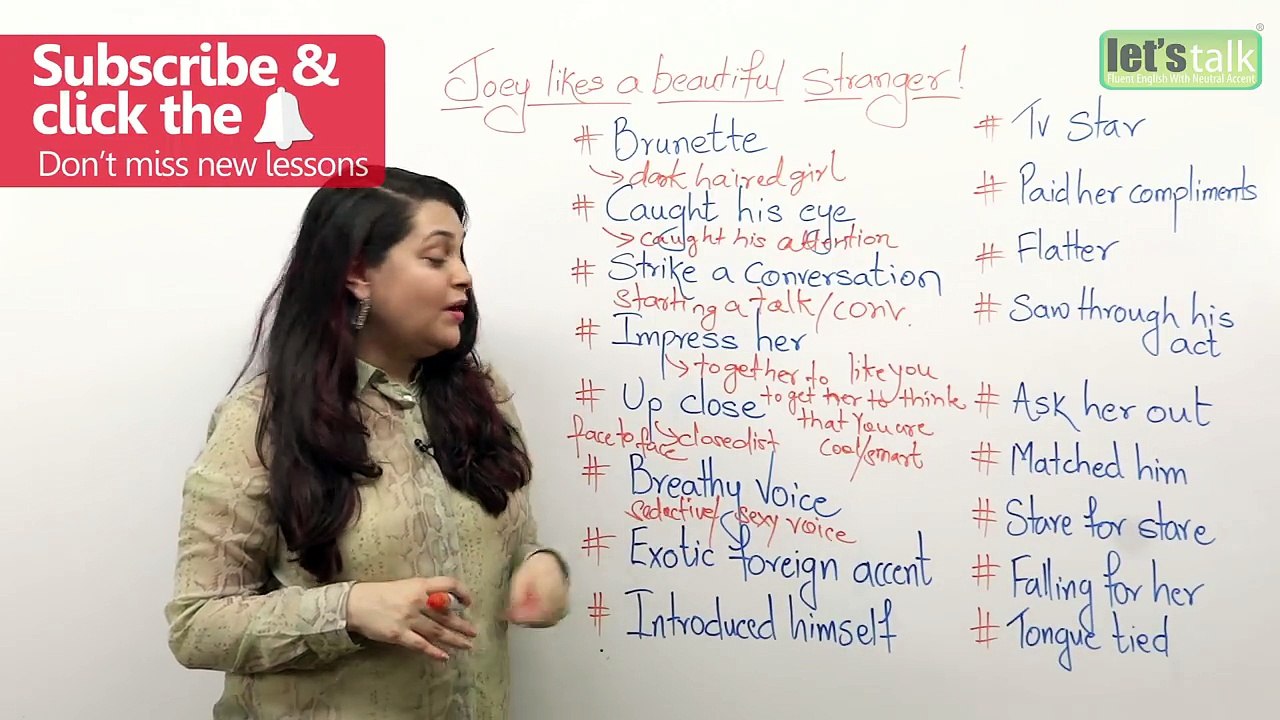 Subscribe &
click the
Don't miss new lessons
let's talk
®
Fluent English With Neutral Accent
Joey likes a beautiful stranger!
# Brunette
dark haired girl
# Caught his eye
caught his attention
# Strike a conversation
starting a talk/conv.
# Impress her
to get her to like you
to get her to think
that you are
cool/smart
# Up close
face to face
close dist
# Breathy voice
seductive/sexy voice
# Exotic foreign accent
# Introduced himself
# Tv Star
# Paid her compliments
# Flatter
# Saw through his
act
# Ask her out
# Matched him
# Stare for stare
# Falling for her
# Tongue tied